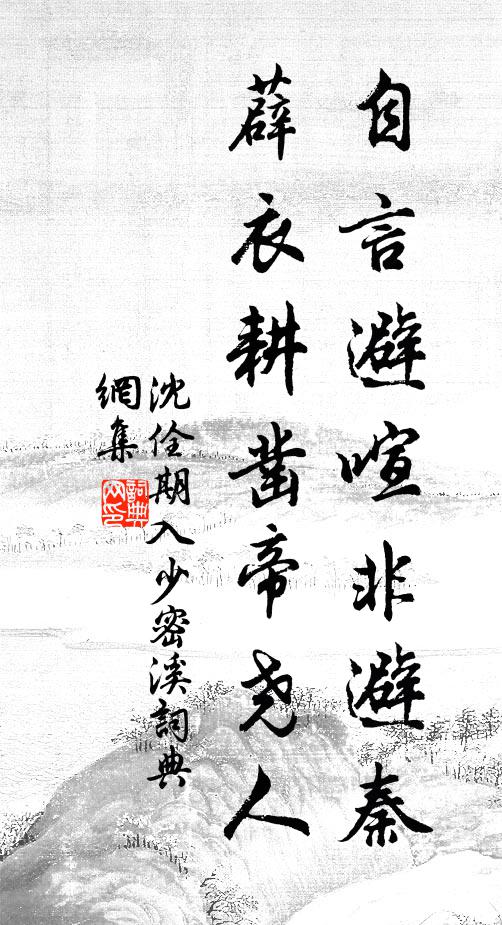 自言避喧非避秦
薜衣耕凿帝尧人
沈佺期入少密溪詞典
網集
詞典
网印